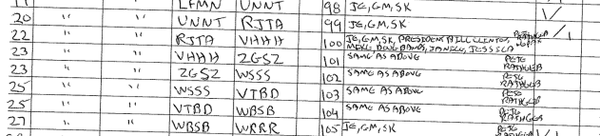 LFMN UNNT 98 JE, GM, SK
20 " " UNNT RJTA 99 JE, GM, SK 1/1
22 " " RJTA VHHH 100 JE, GM, SK, PRESIDENT BILL CLINTON,
23 " " VHHH ZGSZ 101 SAME AS ABOVE PETE RATHGEB
23 " " ZGSZ WSSS 102 SAME AS ABOVE PETE RATHGEB
25 " " WSSS VTBD 103 SAME AS ABOVE PETE RATHGEB
25 " " VTBD WBSB 104 SAME AS ABOVE PETE RATHGEB
27 " " WBSB WRRR 105 JE, GM, SK